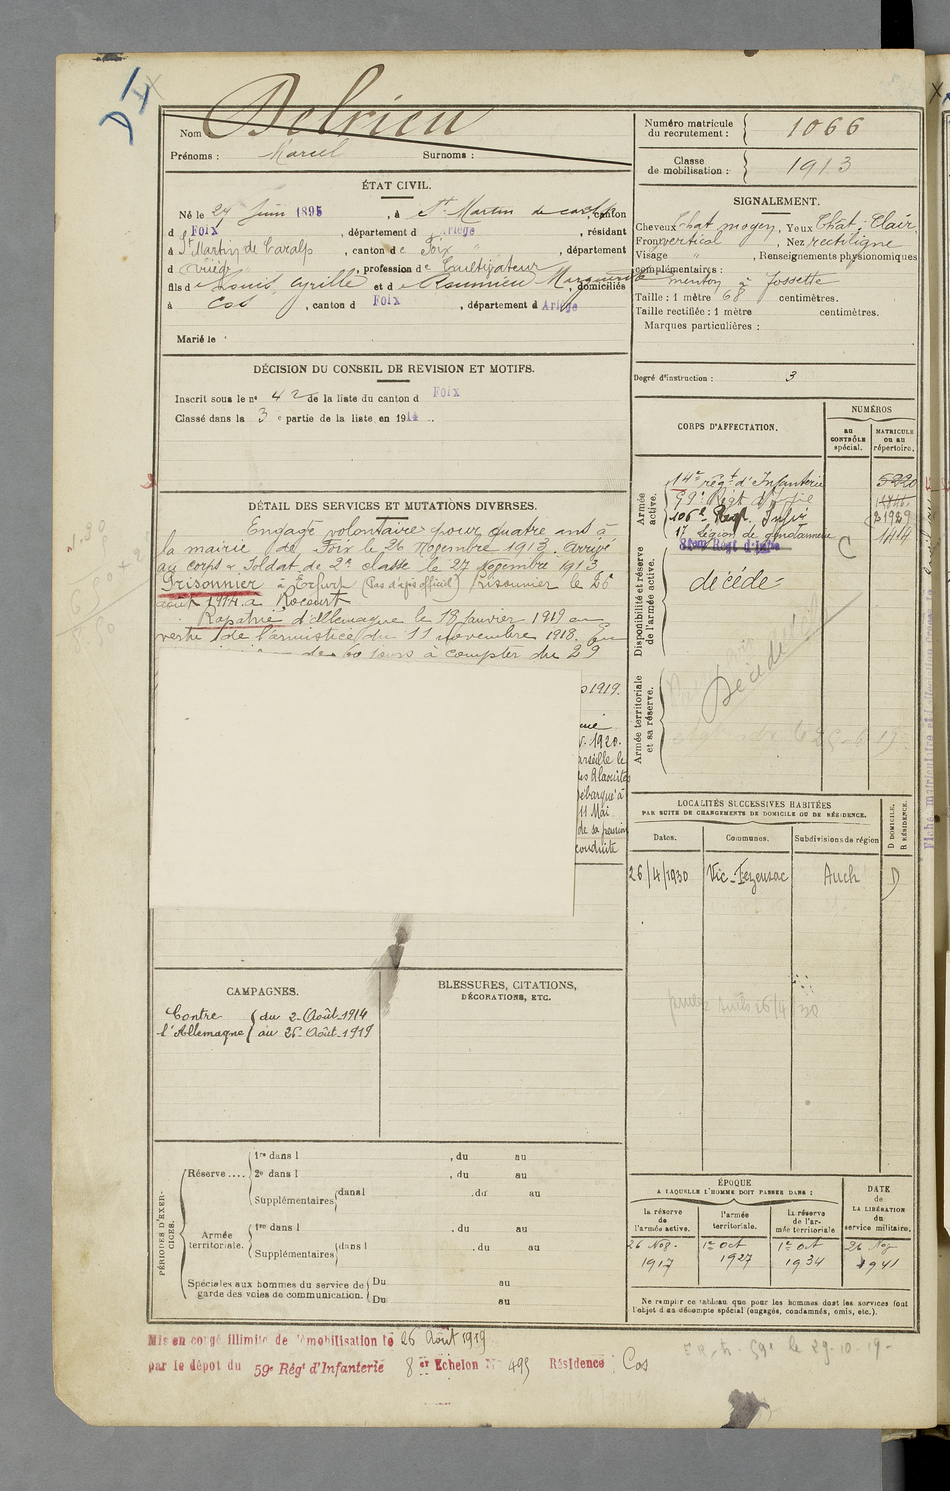 Nom Delrieu
Prénoms : Marcel Surnoms :
Numéro matricule du recrutement : 1066
Classe de mobilisation : 1913
ÉTAT CIVIL.
Né le 24 Juin 1895, à St Martin de Caralp, canton
d Foix, département d Ariège, résidant
à St Martin de Caralp, canton de Foix, département
d Ariège, profession de Cultivateur
fils de Louis Cyrille et de Roumieu Marguerite, domiciliés
à Cos, canton d Foix, département d Ariège
Marié le
SIGNALEMENT.
Cheveux Chat moyen, Yeux Chât. Clair,
Front vertical, Nez rectiligne
Visage " , Renseignements physionomiques
complémentaires :
menton à fossette
Taille : 1 mètre 68 centimètres.
Taille rectifiée : 1 mètre centimètres.
Marques particulières :
Degré d'instruction : 3
DÉCISION DU CONSEIL DE REVISION ET MOTIFS.
Inscrit sous le no 42 de la liste du canton d Foix
Classé dans la 3e partie de la liste en 1914.
CORPS D'AFFECTATION.
NUMÉROS
au CONTRÔLE spécial.
MATRICULE ou au répertoire.
Armée active.
14e régt d'Infanterie 5220
59e Régt d'Infie
106e Regt Infie 21929
17 légion de gendarmerie 1414
8ème Régt d'Infie
C
Disponibilité et réserve de l'armée active.
décédé
Armée territoriale et sa réserve.
Décédé
DÉTAIL DES SERVICES ET MUTATIONS DIVERSES.
Engagé volontaire pour quatre ans à
la mairie de Foix le 26 Novembre 1913. Arrivé
au corps & Soldat de 2e classe le 27 Novembre 1913
Prisonnier à Erfurt (Pas d'avis officiel) Prisonnier le 26
août 1914 à Rocourt
Rapatrié d'Allemagne le 18 Janvier 1919 en
vertu de l'armistice du 11 novembre 1918. En
de 60 jours à compter du 29
1919.
1920.
Marseille le
des Alaouites
débarqué à
11 Mai
de sa pension
conduite
LOCALITÉS SUCCESSIVES HABITÉES
PAR SUITE DE CHANGEMENTS DE DOMICILE OU DE RÉSIDENCE.
D DOMICILE. R RÉSIDENCE.
Dates. Communes. Subdivisions de région
26/4/1930 Vic-Fezensac Auch D
CAMPAGNES.
Contre l'Allemagne { du 2 Août 1914
au 26 Août 1919
BLESSURES, CITATIONS,
DÉCORATIONS, ETC.
PÉRIODES D'EXERCICES.
Réserve.... 1re dans l , du au
2e dans l , du au
Supplémentaires dans l , du au
Armée territoriale. 1re dans l , du au
Supplémentaires dans l , du au
Spéciales aux hommes du service de garde des voies de communication. Du au
Du au
ÉPOQUE
A LAQUELLE L'HOMME DOIT PASSER DANS :
DATE de LA LIBÉRATION du service militaire.
la réserve de l'armée active. l'armée territoriale. la réserve de l'armée territoriale
26 Nov. 1917 1er Oct 1927 1er Oct 1934 26 Nov 1941
Ne remplir ce tableau que pour les hommes dont les services font
l'objet d'un décompte spécial (engagés, condamnés, omis, etc.).
Mis en congé illimité de démobilisation le 26 Août 1919
par le dépôt du 59e Régt d'Infanterie 8er Echelon No 495 Résidence : Cos